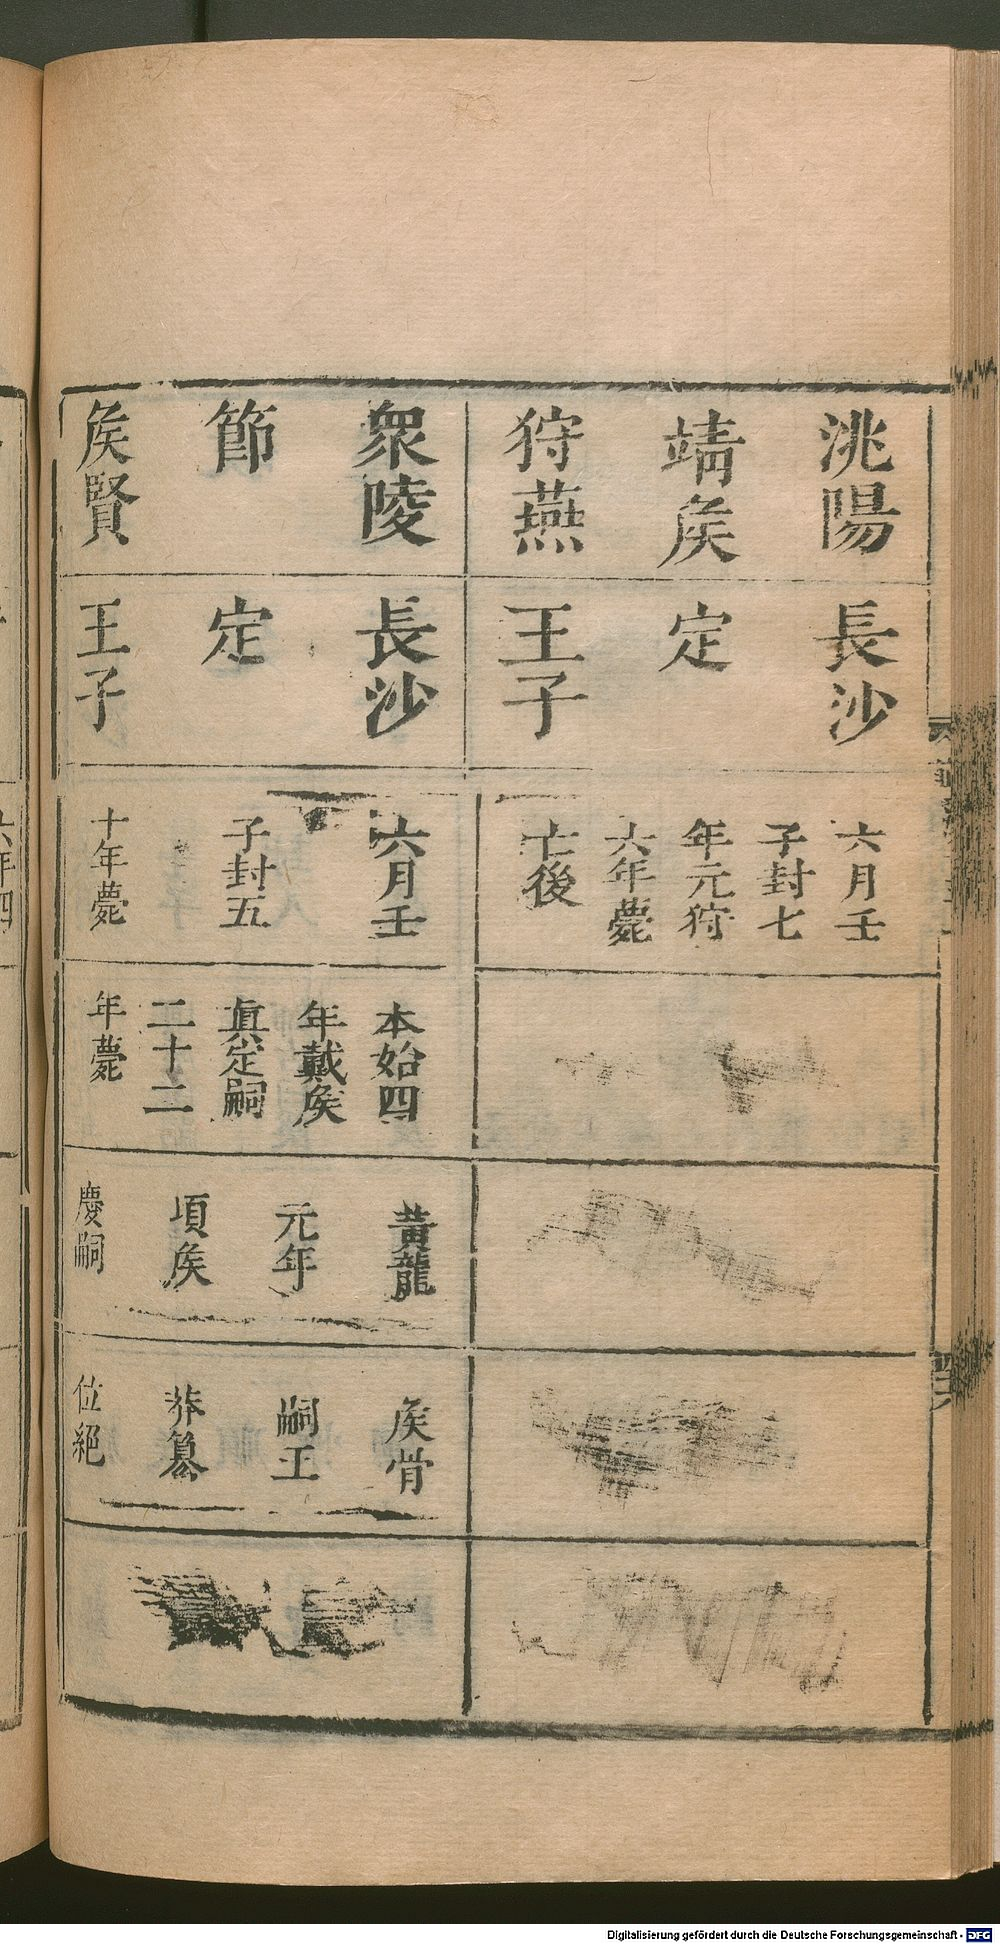 洮陽
靖矦
狩燕
長沙
定
王子
六月壬
子封七
年元狩
六年薨
亡後
衆陵
節
矦賢
長沙
定
王子
六月壬
子封五
十年薨
本始四
年戴矦
眞定嗣
二十二
年薨
黃龍
元年
頃矦
慶嗣
矦骨
嗣王
莽篡
位絕
Digitalisierung gefördert durch die Deutsche Forschungsgemeinschaft - DFG